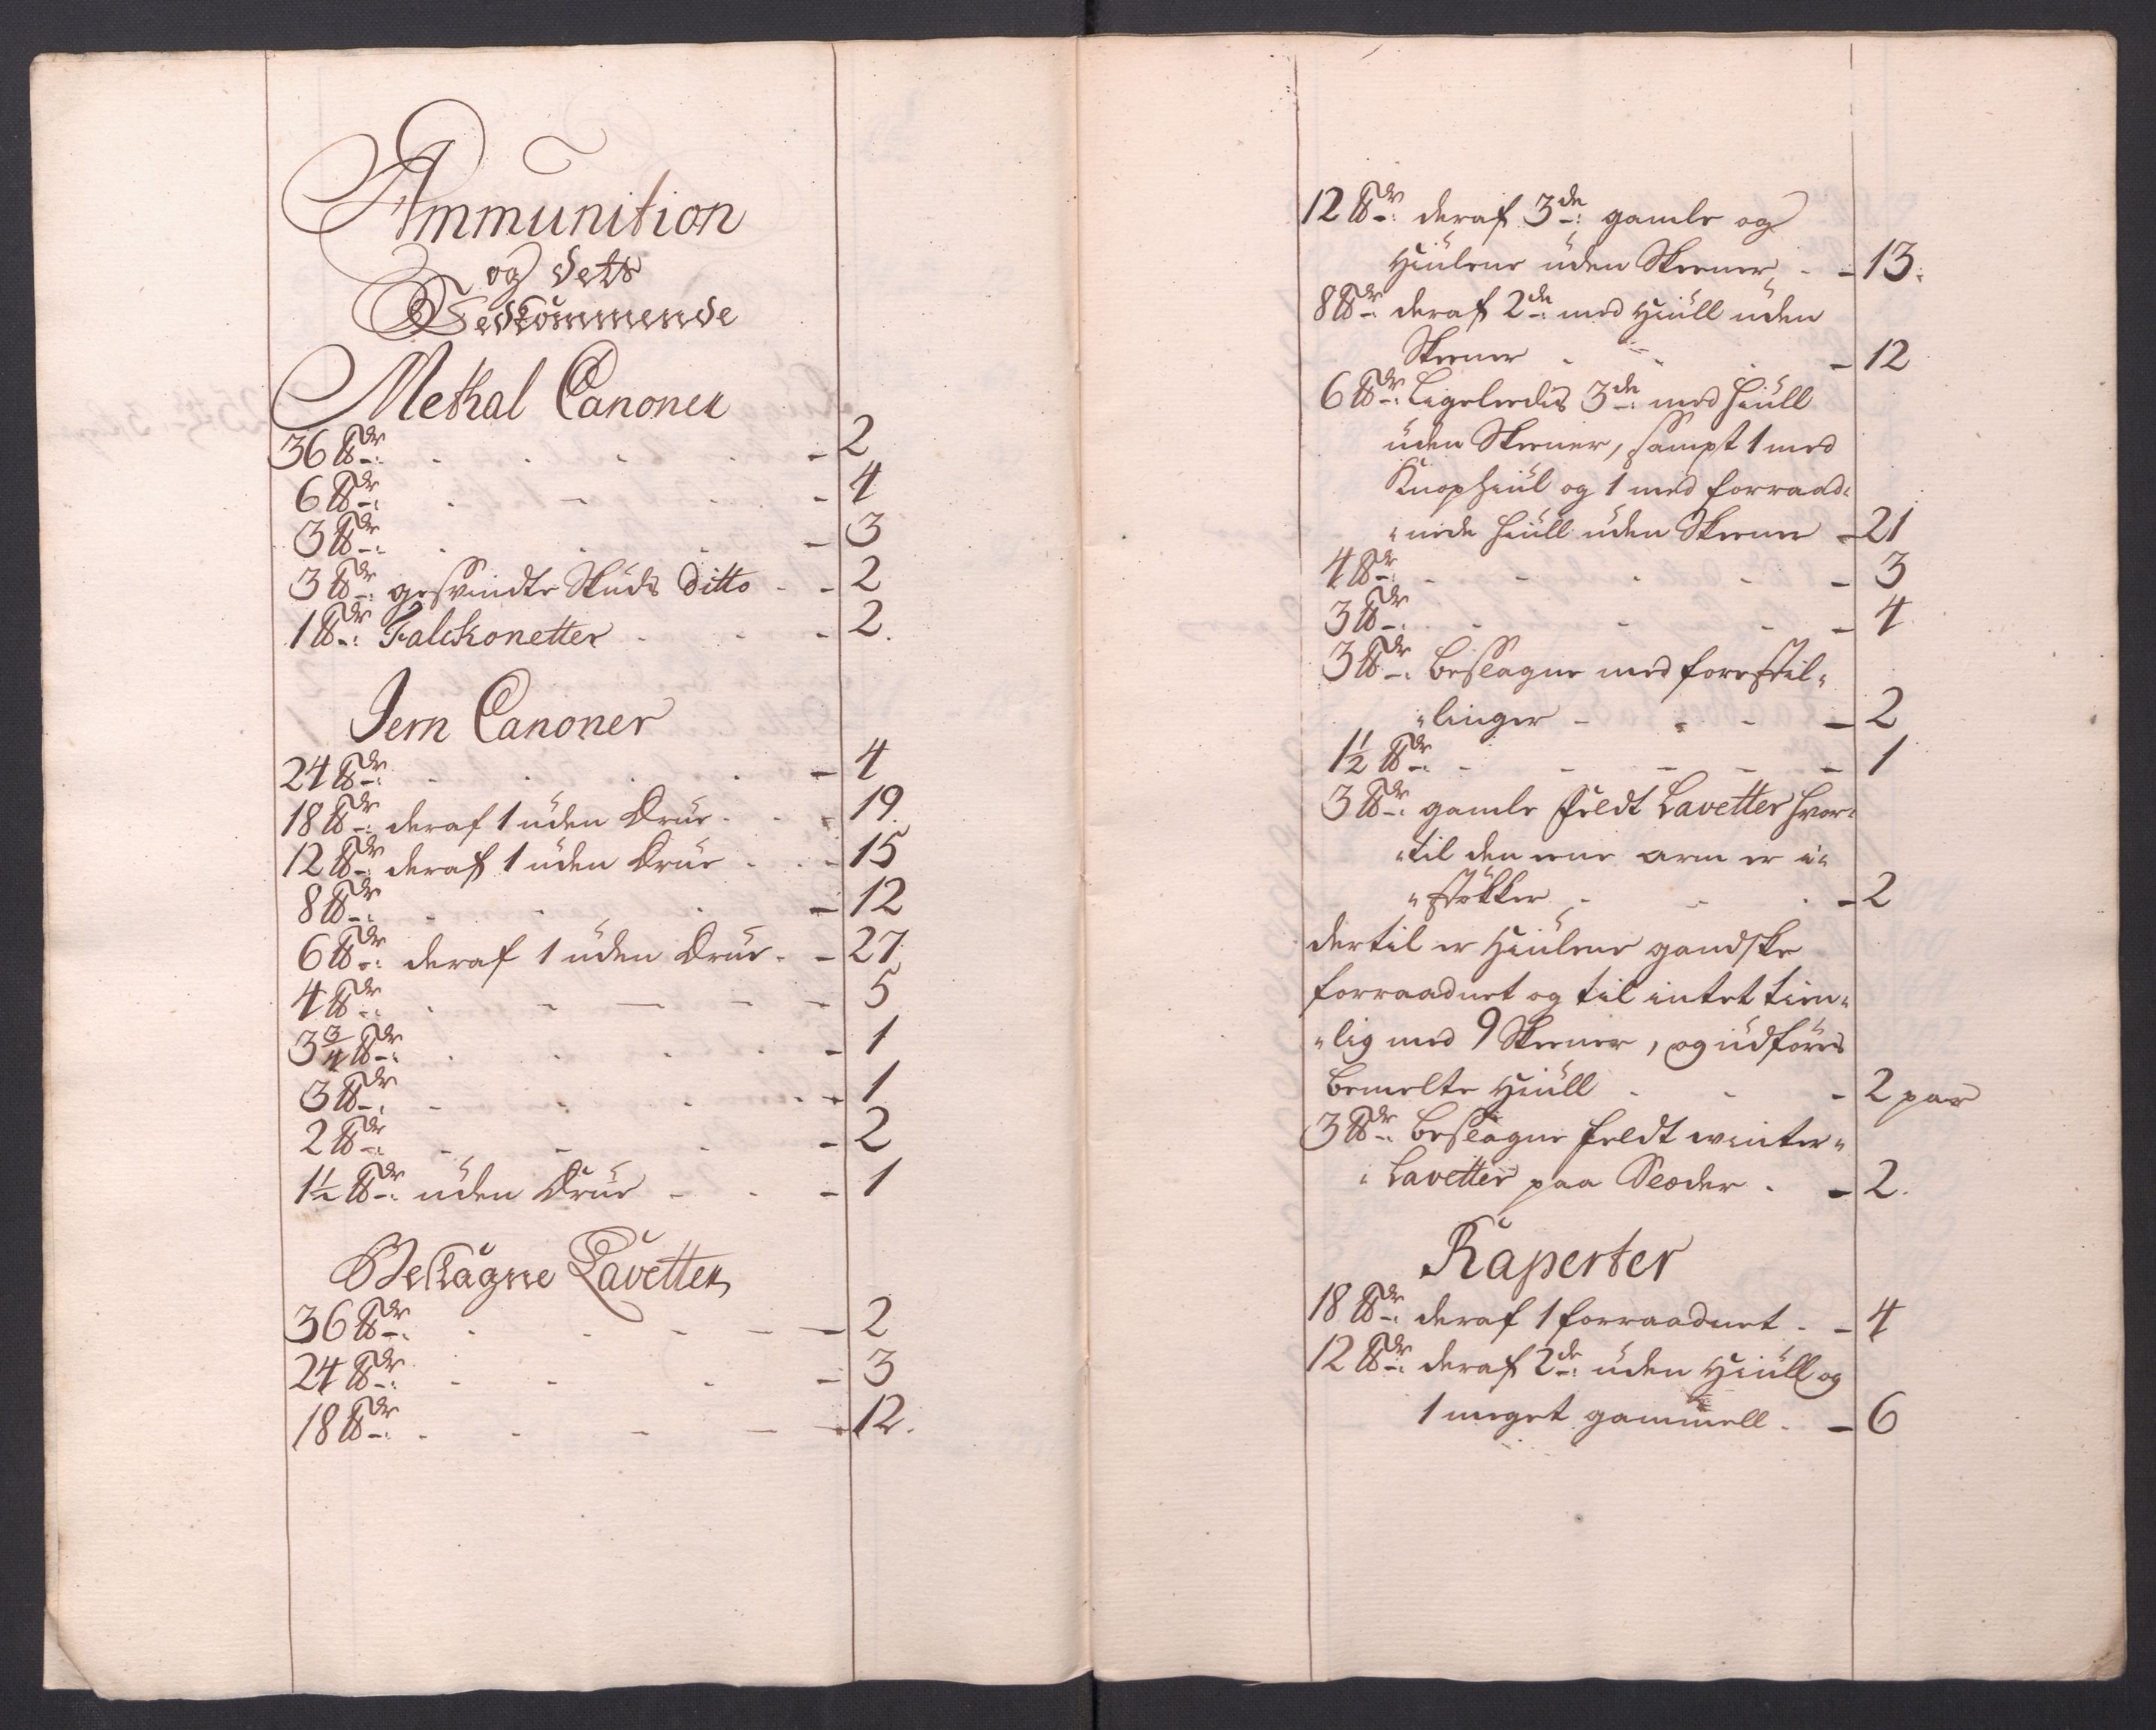 Ammunition
og dets
Vedkommende
Methal Canoner
36 ℔dr: - 2
6 ℔dr: - 4
3 ℔dr: - 3
3 ℔dr: gesvindte Skuds Ditto - 2
1 ℔dr: Falckonetter - 2.
Jern Canoner
24 ℔dr: - 4
18 ℔dr: deraf 1 uden Drue - 19
12 ℔dr: deraf 1 uden Drue - 15
8 ℔dr: - 12
6 ℔dr: deraf 1 uden Drue - 27
4 ℔dr: - 5
3 3/4 ℔dr: - 1
3 ℔dr: - 1
2 ℔dr: - 2
1 1/2 ℔dr: uden Drue - 1
Beslagne Lavetter
36 ℔dr: - 2
24 ℔dr: - 3
18 ℔dr: - 12.
12 ℔dr: deraf 3de: gamle og
Hiulene uden Skeener - 13.
8 ℔dr: deraf 2de: med Hiull uden
Skeener - 12
6 ℔dr: Ligeleedis 3de: med Hiull
uden Skeener, sampt 1 med
Knophiul og 1 med forraad„
„nede hiull uden Skeener - 21
4 ℔dr: - 3
3 ℔dr: - 4
3 ℔dr: beslagne med forestil„
„linger - 2
1 1/2 ℔dr: - 1
3 ℔dr: gamle Feldt Lavetter hvor„
„til den eene arm er i„
„støkker - 2
dertil er Hiulene gandske
forraadnet og til intet tien„
„lig med 9 Skeener, og udføres
bemelte Hiull - 2 par
3 ℔dr: beslagne feldt winter„
„Lavetter paa Slæder - 2.
Raperter
18 ℔dr: deraf 1 forraadnet - 4
12 ℔dr: deraf 2de: uden Hiull og
1 meget gammell - 6